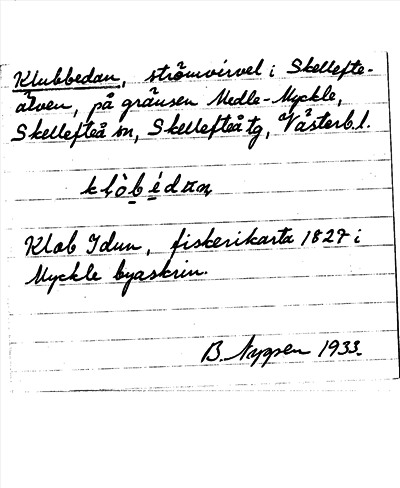 Klubbedan, strömvirvel i Skellefte-
älven, på gränsen Medle-Myckle,
Skellefteå sn, Skellefteå tg, Västerb.l.
Klob Idun, fiskerikarta 1827 i
Myckle byaskrin.
B. 1933.